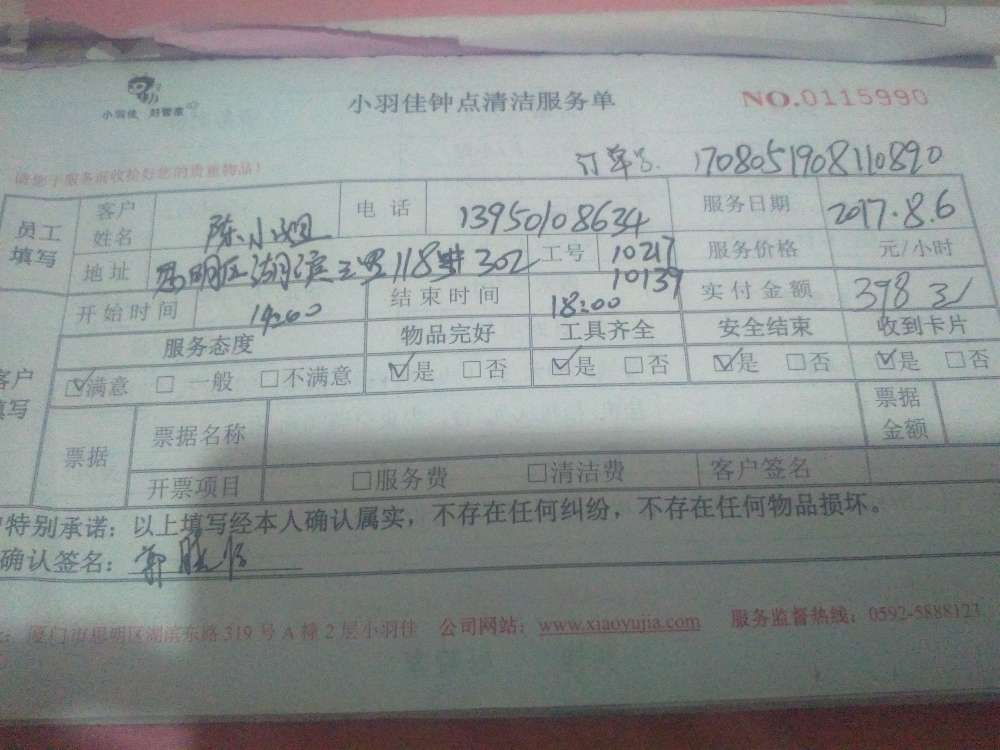 小羽佳 好管家
小羽佳钟点清洁服务单
NO.0115990
订单号 1708051908110890
请您于服务前收拾好您的贵重物品!
员工填写 客户姓名 陈小 电话 13950108634 服务日期 2017.8.6
地址 思明区湖滨三里118# 302 工号 10217 10139 服务价格 元/小时
开始时间 14:00 结束时间 18:00 实付金额 398元
客户填写 服务态度 物品完好 工具齐全 安全结束 收到卡片
☑满意 □一般 □不满意 ☑是 □否 ☑是 □否 ☑是 □否 ☑是 □否
票据 票据名称 票据金额
开票项目 □服务费 □清洁费 客户签名
特别承诺：以上填写经本人确认属实，不存在任何纠纷，不存在任何物品损坏。
确认签名：
厦门市思明区湖滨东路319号A幢2层小羽佳 公司网站：www.xiaoyujia.com 服务监督热线：0592-5888123